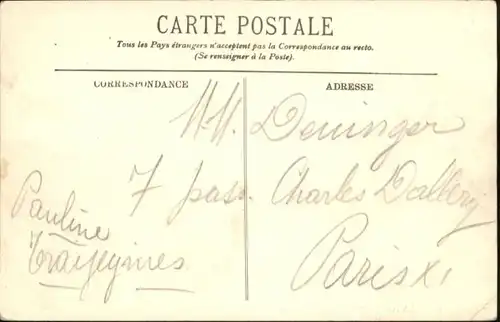 CARTE POSTALE
Tous les Pays étrangers n'acceptent pas la Correspondance au recto.
(Se renseigner à la Poste).
CORRESPONDANCE
ADRESSE
MM. Deninger
7 pass. Charles Dallery
Paris XI
Pauline